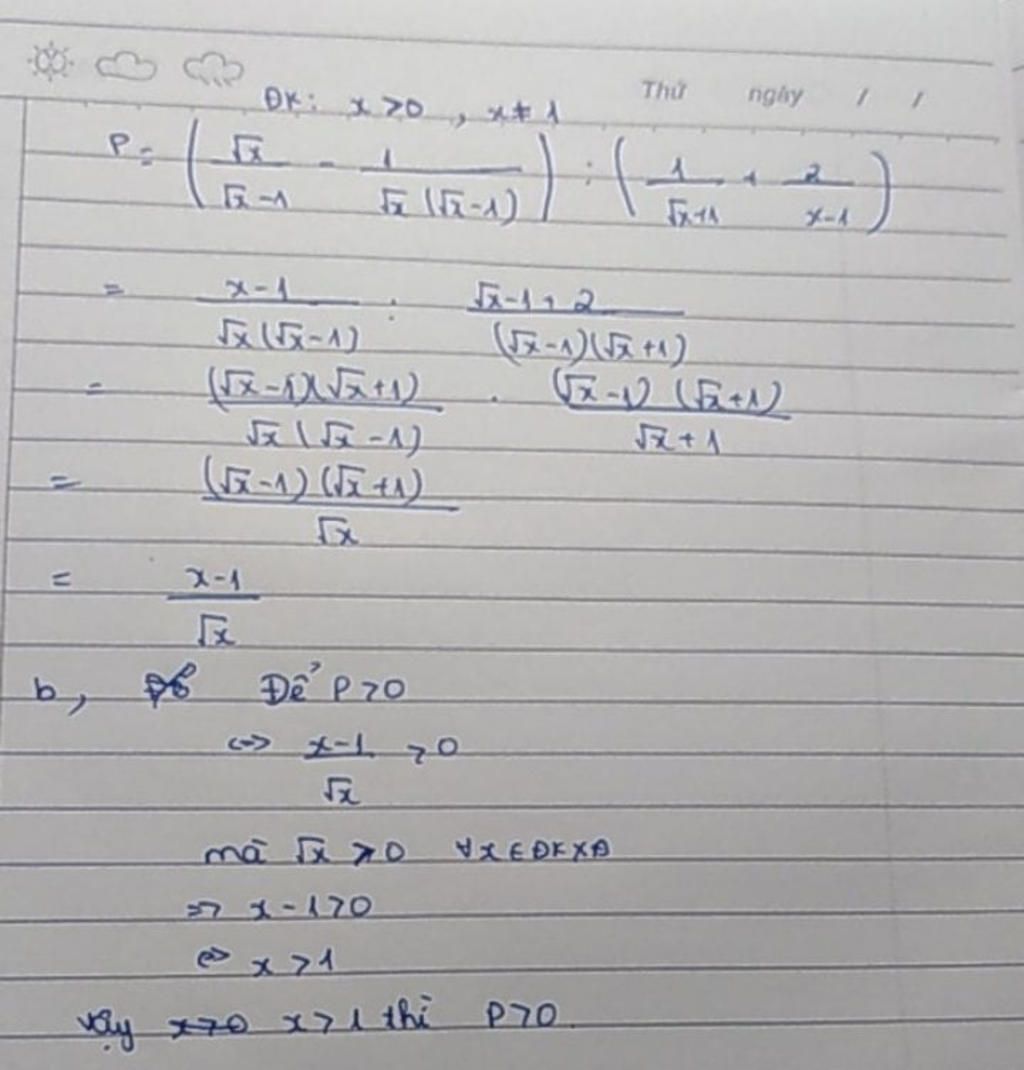 Thứ ngày / /
ĐK: x > 0, x ≠ 1
P = (√x/(√x-1) - 1/(√x(√x-1))) : (1/(√x+1) + 2/(x-1))
= (x-1)/(√x(√x-1)) : (√x-1+2)/((√x-1)(√x+1))
= ((√x-1)(√x+1))/(√x(√x-1)) . ((√x-1)(√x+1))/(√x+1)
= ((√x-1)(√x+1))/√x
= (x-1)/√x
b, Để P > 0
<=> (x-1)/√x > 0
mà √x > 0 ∀x ∈ ĐKXĐ
=> x - 1 > 0
<=> x > 1
Vậy x > 1 thì P > 0.